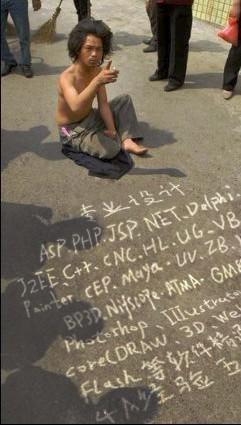 专业设计
ASP.PHP.JSP.NET.Delphi
J2EE.C++.CNC.HL.UG-VB
Painter.CEP.Maya UV.ZB.
BP3D.Nifslope.ATMA.GMB
Photoshop、Illustrato
CorelDRAW、3D.We
Flash等软件精